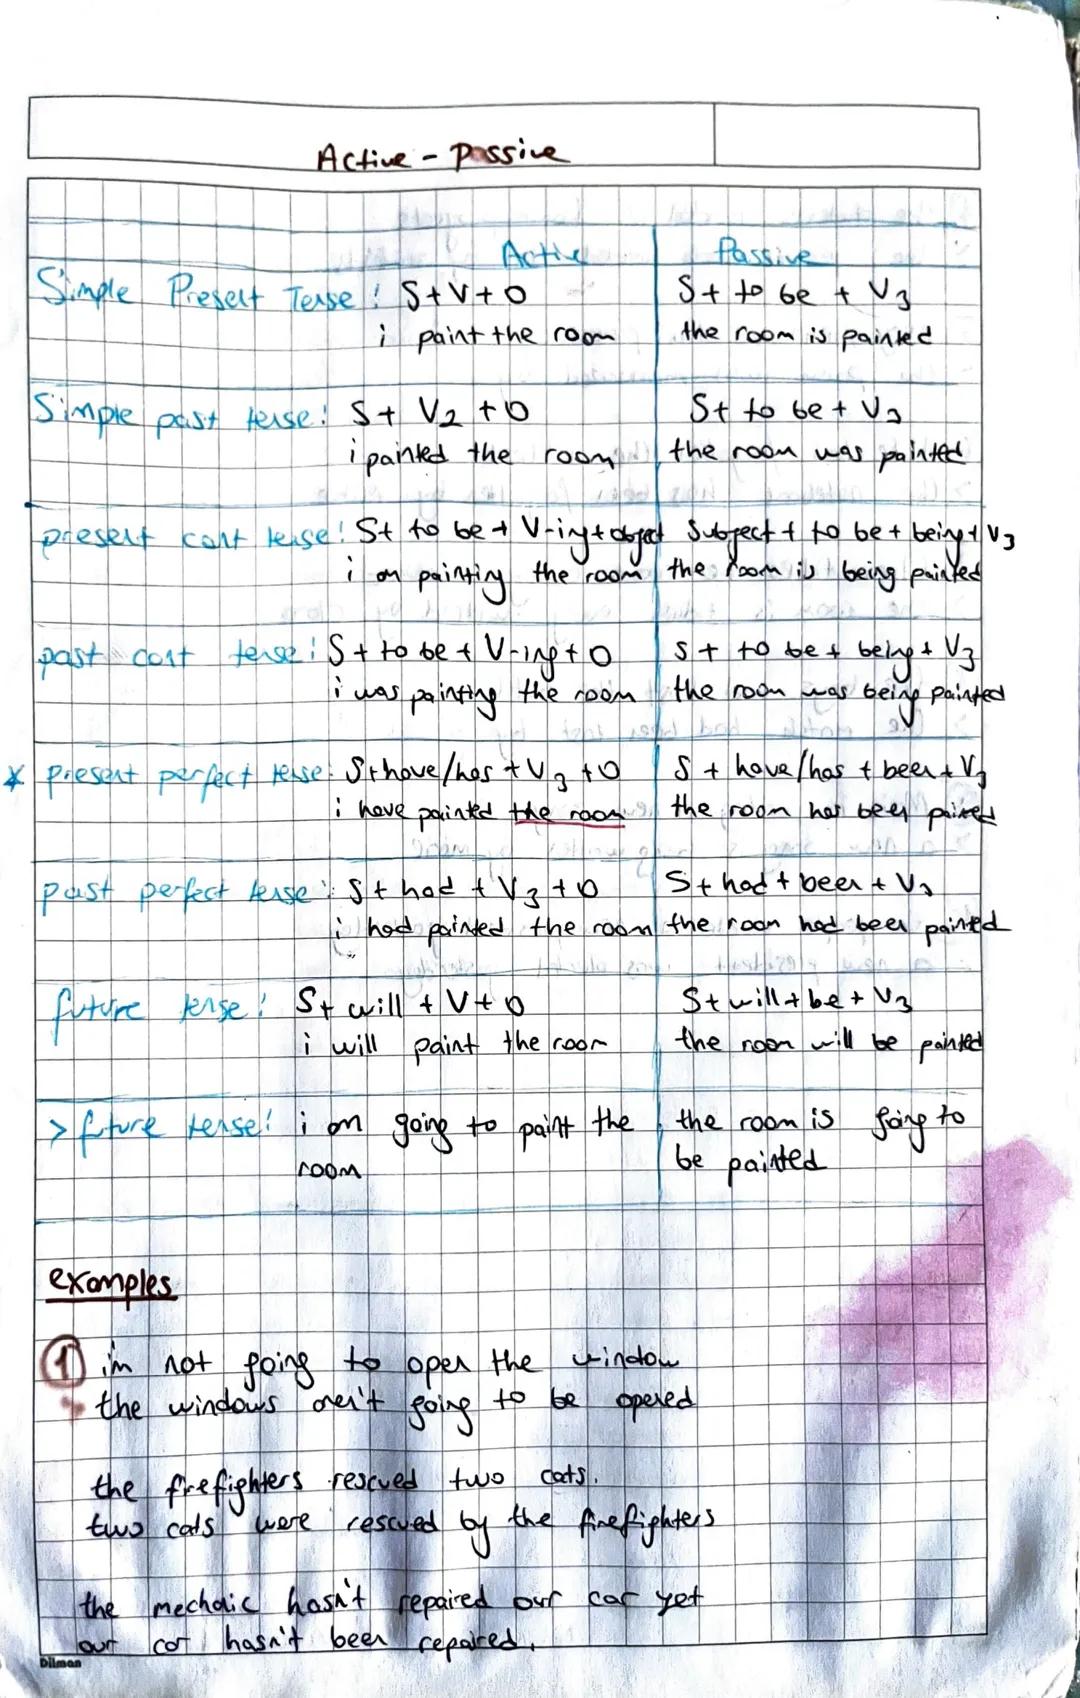 Active - Passive
Active Passive
Simple Present Tense : S + V + O S + to be + V3
i paint the room the room is painted
Simple past tense : S + V2 + O S + to be + V3
i painted the room the room was painted
present cont tense : S + to be + V-ing + object Subject + to be + being + V3
i am painting the room the room is being painted
past cont tense : S + to be + V-ing + O S + to be + being + V3
i was painting the room the room was being painted
* present perfect tense : S + have/has + V3 + O S + have/has + been + V3
i have painted the room the room has been pained
past perfect tense : S + had + V3 + O S + had + been + V3
i had painted the room the room had been painted
future tense : S + will + V + O S + will + be + V3
i will paint the room the room will be painted
> future tense : i am going to paint the the room is going to
room be painted
examples
1 i'm not going to open the window
the windows aren't going to be opened
the firefighters rescued two cats.
two cats were rescued by the firefighters
the mechaic hasn't repaired our car yet
our car hasn't been repaired.
Dilman